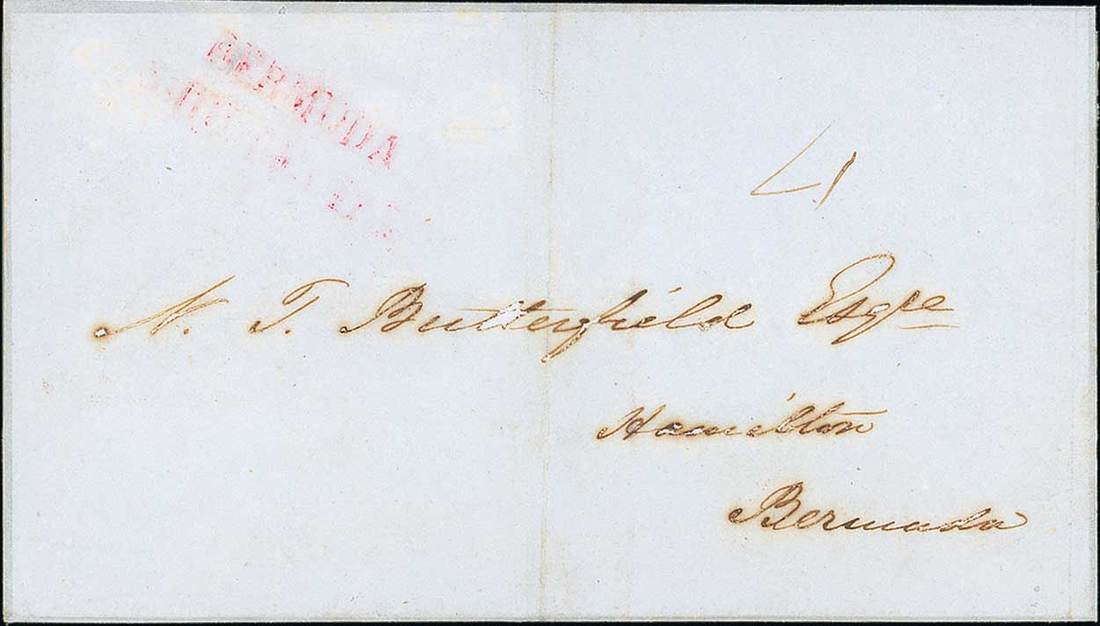 BERMUDA
41
N. T. Butterfield Esqre
Hamilton
Bermuda